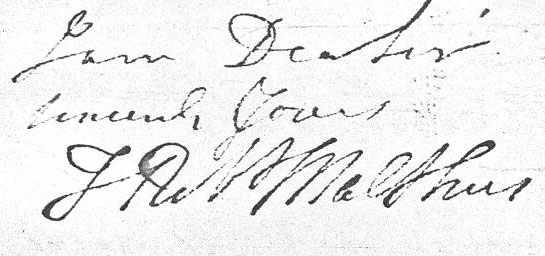 I am Dear Sir
sincerely Yours
T Robt Malthus